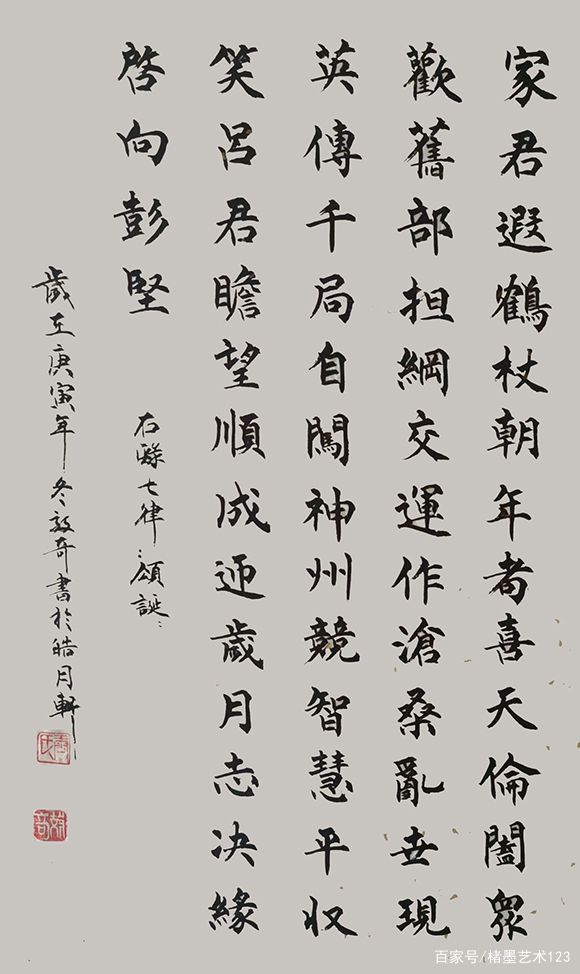 家君遐鶴杖朝年耆喜天倫闔眾
歡舊部担綱交運作滄桑亂世現
英傳千局自闖神州競智慧平収
笑呂君瞻望順成迎歲月志决緣
啓向彭堅
右七律頌誕
歲在庚寅年冬奇書於皓月軒
百家号/楮墨艺术123